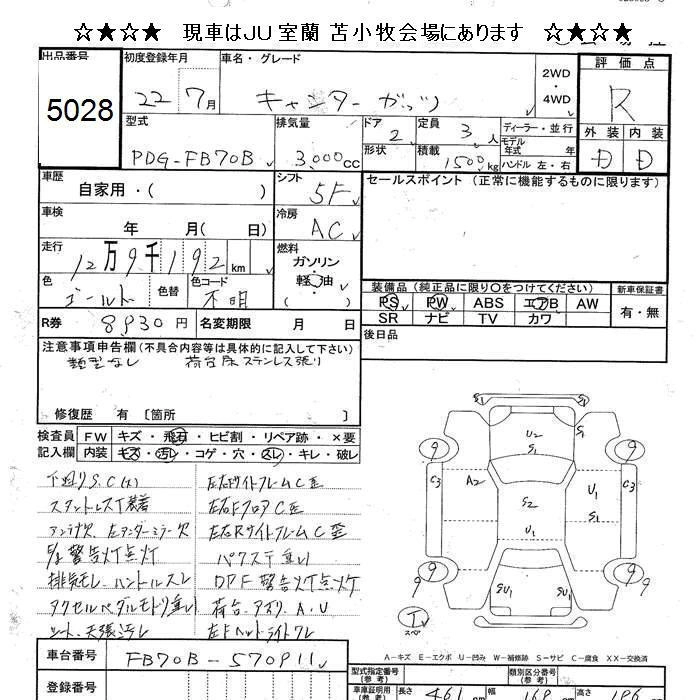 ☆★☆★ 現車はJU室蘭 苫小牧会場にあります ☆★☆★
出品番号 5028
初度登録年月 22 7月
車名・グレード キャンターガッツ
2WD・4WD
評価点 R
外装 D 内装 D
型式 PDG-FB70B
排気量 3,000cc
ドア 2 形状
定員 3人 積載 1500kg
ディーラー・並行
モデル年式 年
ハンドル 左・右
車歴 自家用・( )
シフト 5F
セールスポイント (正常に機能するものに限ります)
車検 年 月( 日)
冷房 AC
走行 12万9千192km
燃料 ガソリン・軽油・( )
色 ゴールド 色替 色コード 不明
装備品 (純正品に限り○をつけてください)
PS PW ABS エアB AW
SR ナビ TV カワ
新車保証書 有・無
R券 8930円 名変期限 月 日
後日品
注意事項申告欄 (不具合内容等は具体的に記入して下さい)
類型なし 荷台床ステンレス張り
修復歴 有 〔箇所 〕
検査員記入欄
FW キズ・飛石・ヒビ割・リペア跡・×要
内装 キズ・汚レ・コゲ・穴・スレ・キレ・破レ
下廻りS.C(大)
スタッドレスT装着
アンテナ欠、左アンダーミラー欠
警告灯点灯
排気モレ、ハンドルスレ
アクセルペダルモドリ重い
シート、天張汚レ
左右サイドフレームC歪
左右FフロアC歪
左右RサイドフレームC歪
パワステ重い
DPF警告灯点灯
荷台、アオリA、U
左Fヘッドライトワレ
S1 S1
U2 S1
S1
9 9
C3 A2 S2 U1 C3
U1 S1
9 9 9 9
SU1 SU1
T スペア
A-キズ E-エクボ U-凹み W-補修跡 S-サビ C-腐食 XX-交換済
車台番号 FB70B-570911
登録番号
型式指定番号(参考) 類別区分番号(参考)
車庫証明用(参考) 長さ 461 幅 169 高さ